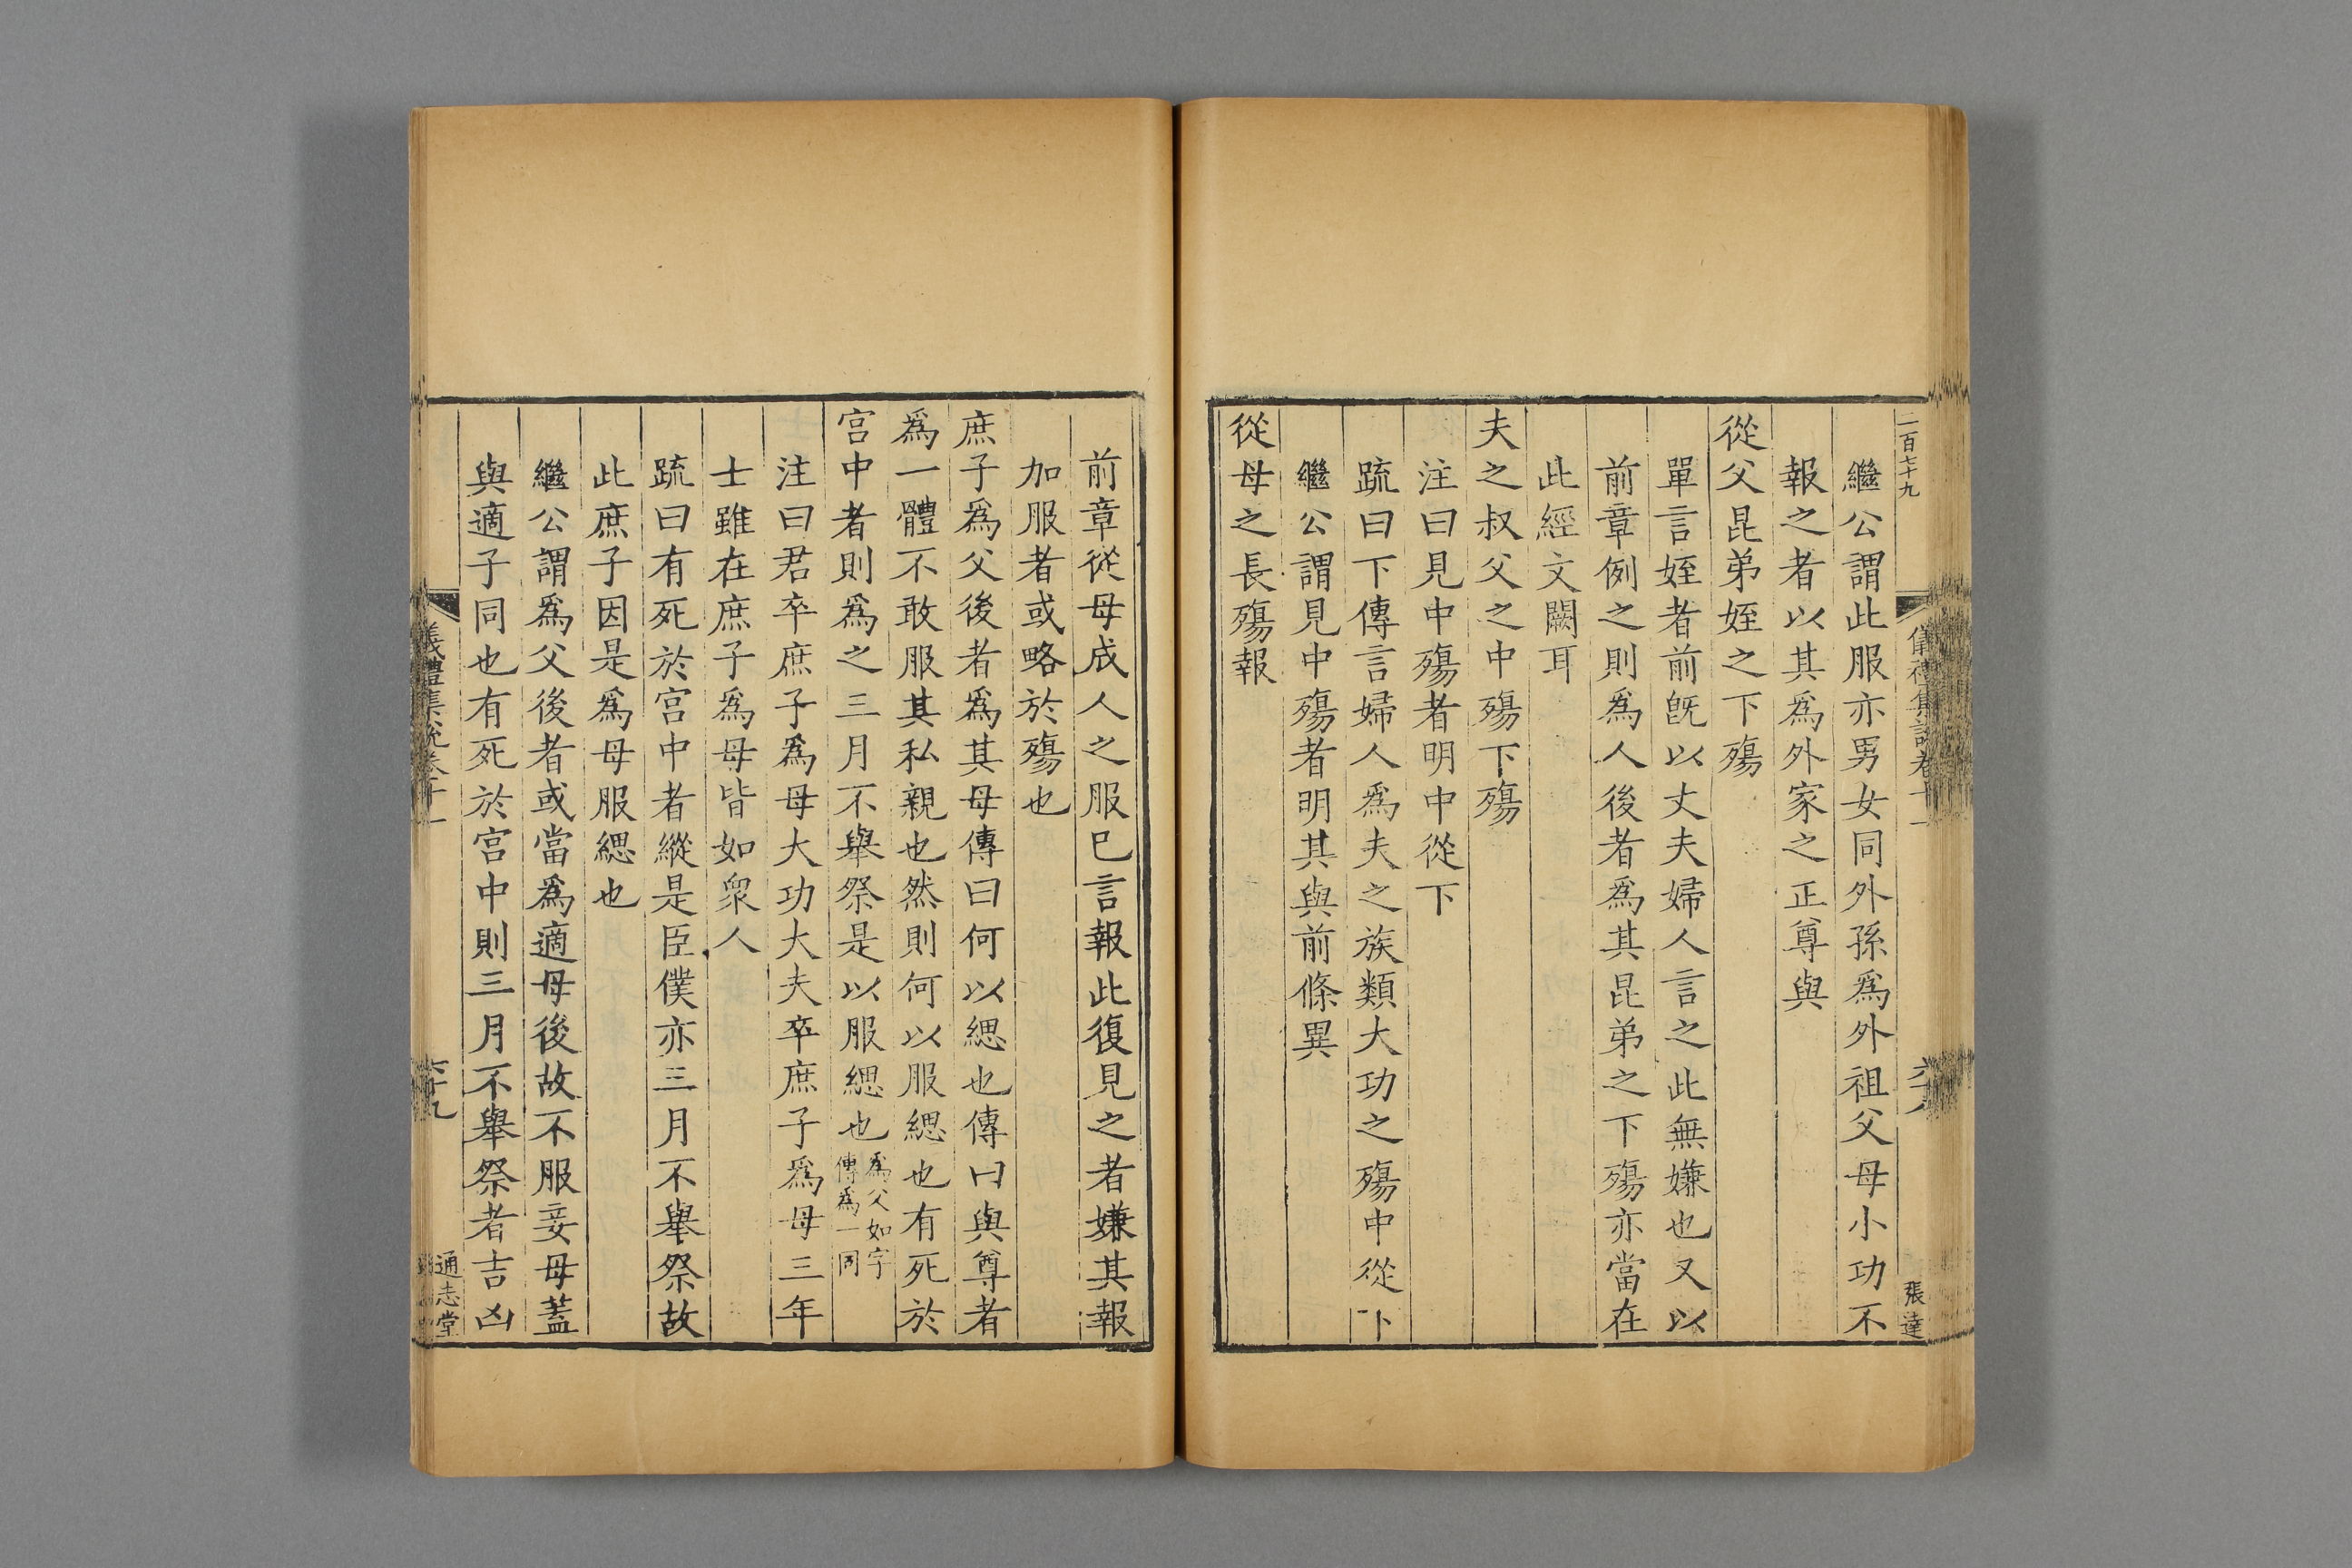 二百七十九
繼公謂此服亦男女同外孫爲外祖父母小功不
報之者以其爲外家之正尊與
從父昆弟姪之下殤
單言姪者前旣以丈夫婦人言之此無嫌也又以
前章例之則爲人後者爲其昆弟之下殤亦當在
此經文闕耳
夫之叔父之中殤下殤
注曰見中殤者明中從下
疏曰下傳言婦人爲夫之族類大功之殤中從下
繼公謂見中殤者明其與前條異
從母之長殤報
儀禮集說卷十一
張達
前章從母成人之服巳言報此復見之者嫌其報
加服者或略於殤也
庶子爲父後者爲其母傳曰何以緦也傳曰與尊者
爲一體不敢服其私親也然則何以服緦也有死於
宫中者則爲之三月不舉祭是以服緦也爲父如字
傳爲一同
注曰君卒庶子爲母大功大夫卒庶子爲母三年
士雖在庶子爲母皆如衆人
疏曰有死於宫中者縱是臣僕亦三月不舉祭故
此庶子因是爲母服緦也
繼公謂爲父後者或當爲適母後故不服妾母蓋
與適子同也有死於宫中則三月不舉祭者吉凶
儀禮集說卷十一
六十九
通志堂